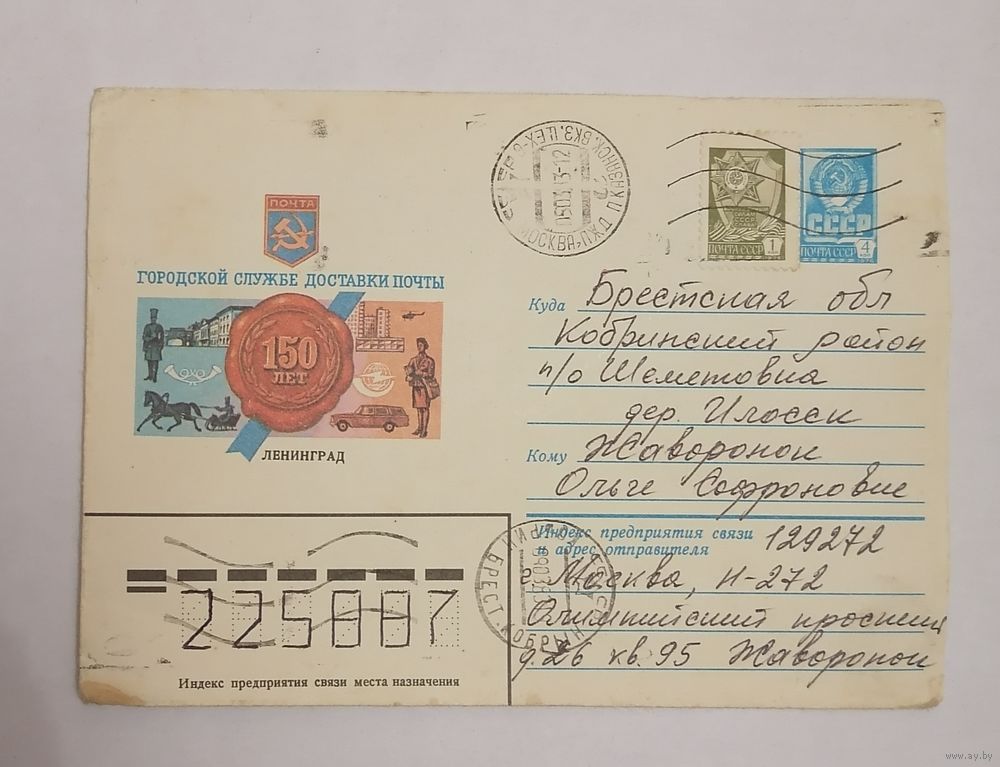 ПОЧТА
ГОРОДСКОЙ СЛУЖБЕ ДОСТАВКИ ПОЧТЫ
150
ЛЕТ
ЛЕНИНГРАД
ПОЧТА СССР 1
СССР
ПОЧТА СССР 4
Куда Брестская обл
Кобринский район
п/о Шеметовка
дер. Илоски
Кому Жаворонок
Ольге Софроновне
Индекс предприятия связи
и адрес отправителя 129272
г. Москва, И-272
Олимпийский проспект
д. 26 кв. 95 Жаворонок
225887
Индекс предприятия связи места назначения
www.ay.by